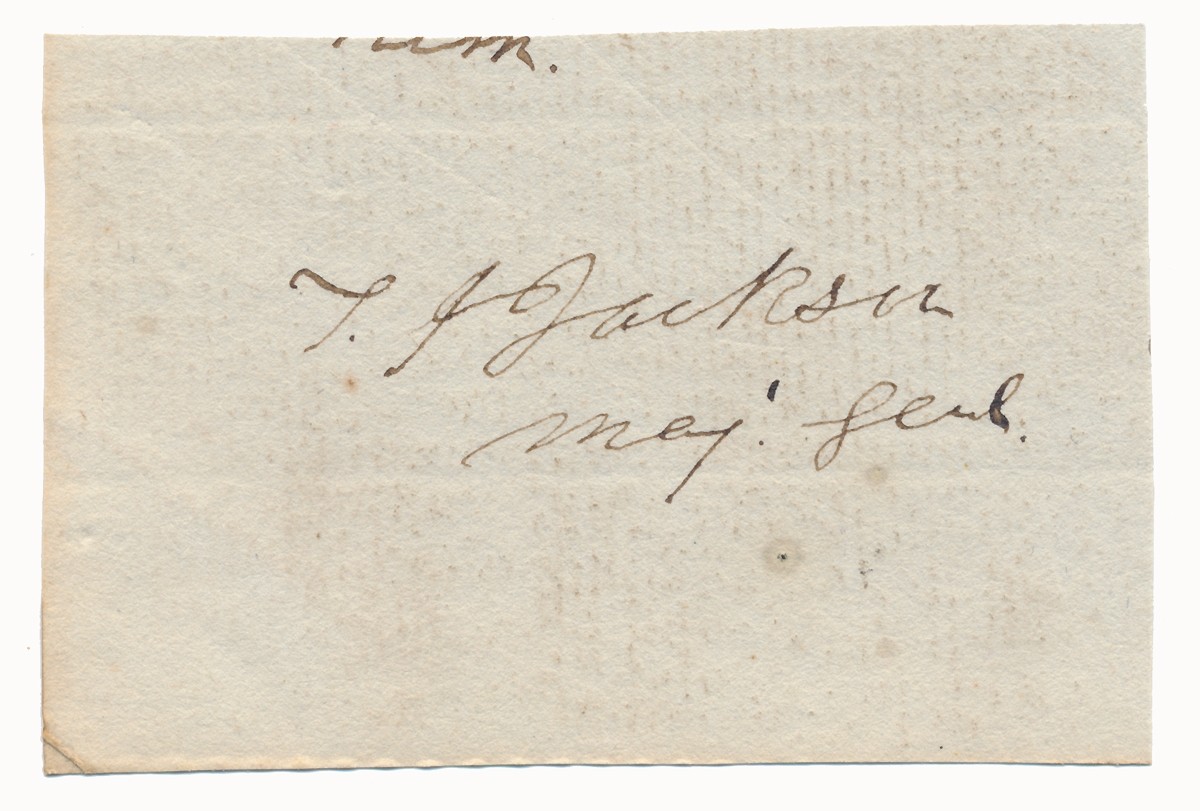 T. J Jackson
Maj. Genl.